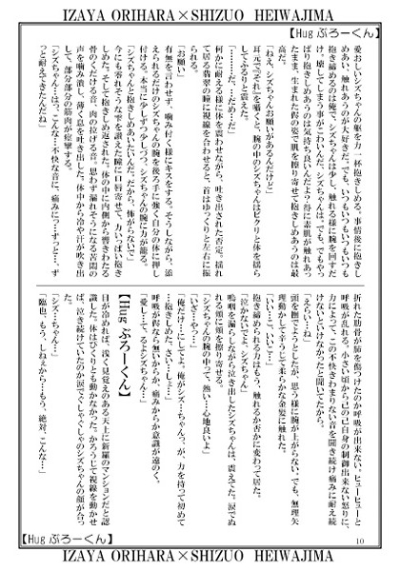 IZAYA ORIHARA×SHIZUO HEIWAJIMA
【Hug ぶろーくん】
愛おしいシズちゃんの躯を力一杯抱きしめる。事情後に抱きし
めあい、触れあうのが大好きだ。でも、いつもいつもいつも
抱き締めるのは俺で、シズちゃんは少し、触れる様に腕を回すだ
け。壊してしまう事がこわいんだ、シズちゃんは。でも、でもやっ
ぱり抱きしめあうのは気持ち良いんだよ?特に素肌が触れあっ
たまま、生まれた侭の姿で肌を擦り寄せて抱きしめあうのは最
高だ。
「ねえ、シズちゃんお願いがあるんだけど」
耳元で〝それ〟を囁くと、腕の中のシズちゃんはビクリと体を揺ら
してふるりと震えた。
「…………だ、…だめ…だ」
何かに耐える様に体を震わせながら、吐き出された否定。揺れ
て居る翡翠の瞳に視線を合わせると、首はゆっくりと左右に振
られる。
「お願い」
有無を言わせず、噛み付く様にキスをする。そうしながら、添
えられるだけのシズちゃんの腕を後ろ手に強く自分の体に押し
付ける。本当に少しずつ少しづつ、シズちゃんの腕に力が籠る。
「シズちゃんと抱きしめあいたいんだ。だから、怖がらないで」
今にも零れそうな雫を讃えた瞳に口唇寄せて、力いっぱい抱き
しめた。そして抱きしめ返された。体の中に内側から響きわたる
骨のくだける音、肉の拉げる音。思わず漏れそうになる苦悶の
声を噛み消し、薄く息を吐き出した。体中から冷や汗が吹き出
して、部分部分の筋肉が痙攣する。
「シズちゃん…はっ、こんな…不快な音に、痛みにっ…ずっと…、ず
っと耐えてきたんだね」
折れた肋骨が肺を傷つけたのか呼吸が出来ない。ヒューヒューと
呼吸が乱れる。小さい頃から己の己自身の制御出来ない怒りに、
力によって、この不快きわまりない音を聞き続け痛みに耐え続
けないといけなかったと聞いてたから。
「えらいね…」
頭を撫でようとしたが、思う様に腕が上がらない。でも、無理矢
理動かして辛うじて柔らかな金髪に触れた。
「いい…ご、いいこ…」
抱き締められる力はもう、触れるか否かに変わって居た。
「泣かないでよ、シズちゃん」
嗚咽を漏らしながら泣き出したシズちゃんは、震えてた。涙でぬ
れる頬に頬を擦り寄せる。
「シズちゃんの腕の中って、熱い…心地良いよ」
「いざ…やっ…」
「俺…だけにしてよ、俺がシズ…ちゃんっ、が、力を持って初めて
…抱きしめ…た、さいしょ…に…」
呼吸が得ない無いからか、痛みからか意識が遠のく。
「愛し…てる…よシズちゃん…」
【Hug ぶろーくん】
目が冷めれば、浅く見覚えのある天上に新羅のマンションだと認
識した。体はぴくりとも動かなかった。かろうじて視線を動かせ
ば、泣き続けていたのか涙でぐしゃぐしゃのシズちゃんの顔が合っ
た。
「シズ…ちゃん…」
「臨也、もう、しねぇから…！もう、絶対、こんな…」
10
【Hug ぶろーくん】
IZAYA ORIHARA×SHIZUO HEIWAJIMA